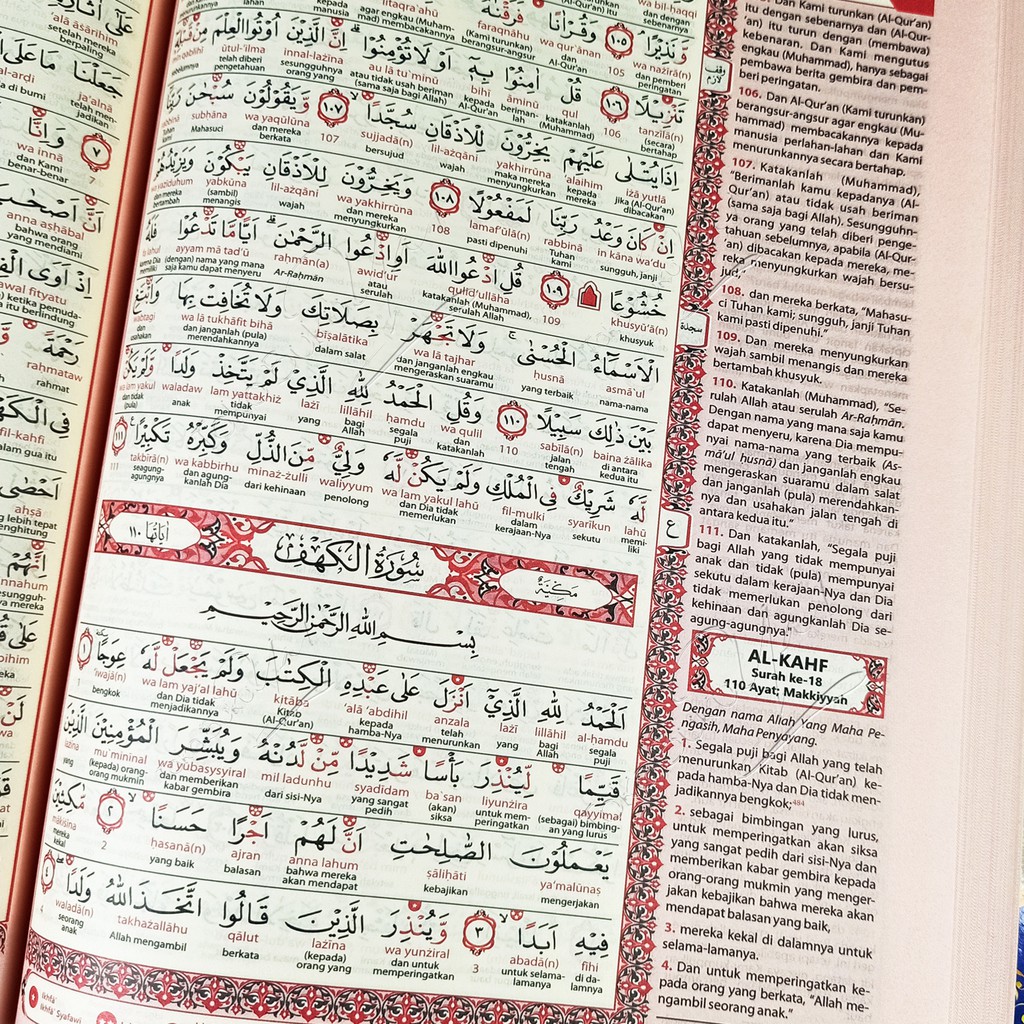 وَّنَذِيْرًا ۘ ١٠٥ وَقُرْاٰنًا فَرَقْنٰهُ
wa nażīrā(n) 105 wa qur'ānan faraqnāhu
dan pemberi peringatan dan Al-Qur'an Kami turunkan berangsur-angsur
تَنْزِيْلًا ١٠٦ قُلْ اٰمِنُوْا بِهٖٓ اَوْ لَا تُؤْمِنُوْا ۗ اِنَّ الَّذِيْنَ اُوْتُوا الْعِلْمَ مِنْ قَبْلِهٖٓ
tanzīlā(n) 106 qul āminū bihī au lā tu'minū innal-lażīna ūtul-'ilma
(secara) bertahap katakanlah (Muhammad) berimanlah kamu kepadanya atau tidak usah beriman (sama saja bagi Allah) sesungguhnya orang yang telah diberi pengetahuan sebelumnya
اِذَا يُتْلٰى عَلَيْهِمْ يَخِرُّوْنَ لِلْاَذْقَانِ سُجَّدًا ١٠٧ وَّيَقُوْلُوْنَ سُبْحٰنَ رَبِّنَآ
iżā yutlā 'alaihim yakhirrūna lil-ażqāni sujjadā(n) 107 wa yaqūlūna subḥāna rabbinā
jika (Al-Qur'an) dibacakan kepada mereka maka mereka menyungkurkan wajah bersujud dan mereka berkata Mahasuci
اِنْ كَانَ وَعْدُ رَبِّنَا لَمَفْعُوْلًا ١٠٨ وَيَخِرُّوْنَ لِلْاَذْقَانِ يَبْكُوْنَ وَيَزِيْدُهُمْ
in kāna wa'du rabbinā lamaf'ūlā(n) 108 wa yakhirrūna lil-ażqāni yabkūna wa yazīduhum
sungguh, janji Tuhan kami pasti dipenuhi dan mereka menyungkurkan wajah (sambil) menangis dan mereka bertambah
خُشُوْعًا ١٠٩ قُلِ ادْعُوا اللّٰهَ اَوِ ادْعُوا الرَّحْمٰنَ ۗ اَيًّا مَّا تَدْعُوْا فَلَهُ
khusyū'ā(n) 109 qulid'ullāha awid'ur raḥmān(a) ayyam mā tad'ū
khusyuk katakanlah (Muhammad), serulah Allah atau serulah Ar-Raḥmān (dengan) nama yang mana saja kamu dapat menyeru karena Dia memiliki
الْاَسْمَاۤءُ الْحُسْنٰى ۚ وَلَا تَجْهَرْ بِصَلَاتِكَ وَلَا تُخَافِتْ بِهَا وَابْتَغِ
asmā'ul ḥusnā wa lā tajhar biṣalātika wa lā tukhāfit bihā wabtagi
nama-nama yang terbaik dan janganlah engkau mengeraskan suaramu dalam salat dan janganlah (pula) merendahkannya dan usahakan
بَيْنَ ذٰلِكَ سَبِيْلًا ١١٠ وَقُلِ الْحَمْدُ لِلّٰهِ الَّذِيْ لَمْ يَتَّخِذْ وَلَدًا وَّلَمْ يَكُنْ
baina żālika sabīlā(n) 110 wa qulil ḥamdu lillāhil lażī lam yattakhiż waladaw wa lam yakul
di antara kedua itu jalan tengah dan katakanlah segala puji bagi Allah yang tidak mempunyai anak dan tidak (pula)
لَّهٗ شَرِيْكٌ فِى الْمُلْكِ وَلَمْ يَكُنْ لَّهٗ وَلِيٌّ مِّنَ الذُّلِّ وَكَبِّرْهُ تَكْبِيْرًا ١١١
lahū syarīkun fil-mulki wa lam yakul lahū waliyyum minaż-żulli wa kabbirhu takbīrā(n) 111
memiliki sekutu dalam kerajaan-Nya dan Dia tidak memerlukan penolong dari kehinaan dan agungkanlah Dia seagung-agungnya
مَكِّيَّةٌ سُوْرَةُ الْكَهْفِ اٰيَاتُهَا ١١٠
بِسْمِ اللّٰهِ الرَّحْمٰنِ الرَّحِيْمِ
اَلْحَمْدُ لِلّٰهِ الَّذِيْٓ اَنْزَلَ عَلٰى عَبْدِهِ الْكِتٰبَ وَلَمْ يَجْعَلْ لَّهٗ عِوَجًا ١
al-ḥamdu lillāhil lażī anzala 'alā 'abdihil kitāba wa lam yaj'al lahū 'iwajā(n) 1
segala puji bagi Allah yang telah menurunkan kepada hamba-Nya Kitab (Al-Qur'an) dan Dia tidak menjadikannya bengkok
قَيِّمًا لِّيُنْذِرَ بَأْسًا شَدِيْدًا مِّنْ لَّدُنْهُ وَيُبَشِّرَ الْمُؤْمِنِيْنَ الَّذِيْنَ
qayyimal liyunżira ba'san syadīdam mil ladunhu wa yubasysyiral mu'minīnal lażīna
(sebagai) bimbingan yang lurus untuk memperingatkan (akan) siksa yang sangat pedih dari sisi-Nya dan memberikan kabar gembira (kepada) orang-orang mukmin yang
يَعْمَلُوْنَ الصّٰلِحٰتِ اَنَّ لَهُمْ اَجْرًا حَسَنًا ٢ مّٰكِثِيْنَ
ya'malūnaṣ ṣāliḥāti anna lahum ajran ḥasanā(n) 2 mākiṡīna
mengerjakan kebajikan bahwa mereka akan mendapat balasan yang baik mereka kekal
فِيْهِ اَبَدًا ٣ وَّيُنْذِرَ الَّذِيْنَ قَالُوا اتَّخَذَ اللّٰهُ وَلَدًا ٤
fīhi abadā(n) 3 wa yunżiral lażīna qālut takhażallāhu waladā(n) 4
di dalamnya untuk selama-lamanya dan untuk memperingatkan (kepada) orang yang berkata Allah mengambil seorang anak
Ikhfā'
Ikhfā' Syafawi
Dan Kami turunkan (Al-Qur'an)
itu dengan sebenarnya dan (Al-Qur-
'an) itu turun dengan (membawa)
kebenaran. Dan Kami mengutus
engkau (Muhammad), hanya sebagai
pembawa berita gembira dan pem-
beri peringatan.
106. Dan Al-Qur'an (Kami turunkan)
berangsur-angsur agar engkau (Mu-
hammad) membacakannya kepada
manusia perlahan-lahan dan Kami
menurunkannya secara bertahap.
107. Katakanlah (Muhammad),
"Berimanlah kamu kepadanya (Al-
Qur'an) atau tidak usah beriman
(sama saja bagi Allah). Sesungguhn-
ya orang yang telah diberi penge-
tahuan sebelumnya, apabila (Al-Qur-
'an) dibacakan kepada mereka, me-
reka menyungkurkan wajah bersu-
jud,"
108. dan mereka berkata, "Mahasu-
ci Tuhan kami; sungguh, janji Tuhan
kami pasti dipenuhi."
109. Dan mereka menyungkurkan
wajah sambil menangis dan mereka
bertambah khusyuk.
110. Katakanlah (Muhammad), "Se-
rulah Allah atau serulah Ar-Raḥmān.
Dengan nama yang mana saja kamu
dapat menyeru, karena Dia mempu-
nyai nama-nama yang terbaik (As-
mā'ul ḥusnā) dan janganlah engkau
mengeraskan suaramu dalam salat
dan janganlah (pula) merendahkan-
nya dan usahakan jalan tengah di
antara kedua itu."
111. Dan katakanlah, "Segala puji
bagi Allah yang tidak mempunyai
anak dan tidak (pula) mempunyai
sekutu dalam kerajaan-Nya dan Dia
tidak memerlukan penolong dari
kehinaan dan agungkanlah Dia se-
agung-agungnya."
AL-KAHF
Surah ke-18
110 Ayat; Makkiyyah
Dengan nama Allah Yang Maha Pe-
ngasih, Maha Penyayang.
1. Segala puji bagi Allah yang telah
menurunkan Kitab (Al-Qur'an) ke-
pada hamba-Nya dan Dia tidak men-
jadikannya bengkok;
2. sebagai bimbingan yang lurus,
untuk memperingatkan akan siksa
yang sangat pedih dari sisi-Nya dan
memberikan kabar gembira kepada
orang-orang mukmin yang menger-
jakan kebajikan bahwa mereka akan
mendapat balasan yang baik,
3. mereka kekal di dalamnya untuk
selama-lamanya.
4. Dan untuk memperingatkan ke-
pada orang yang berkata, "Allah me-
ngambil seorang anak."